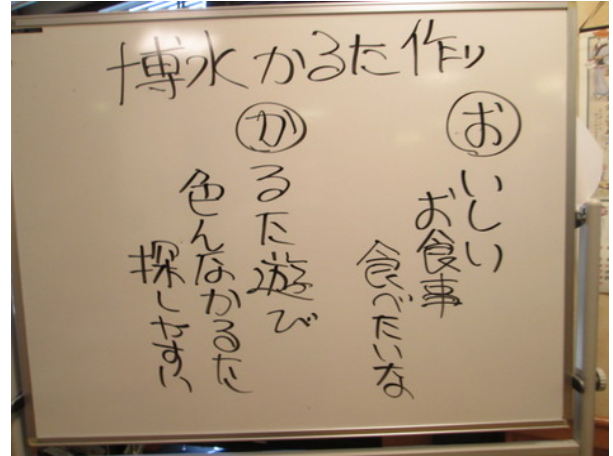 博水かるた作り
おいしい
お食事
食べたいな
かるた遊び
色んなかるた
探しやすい